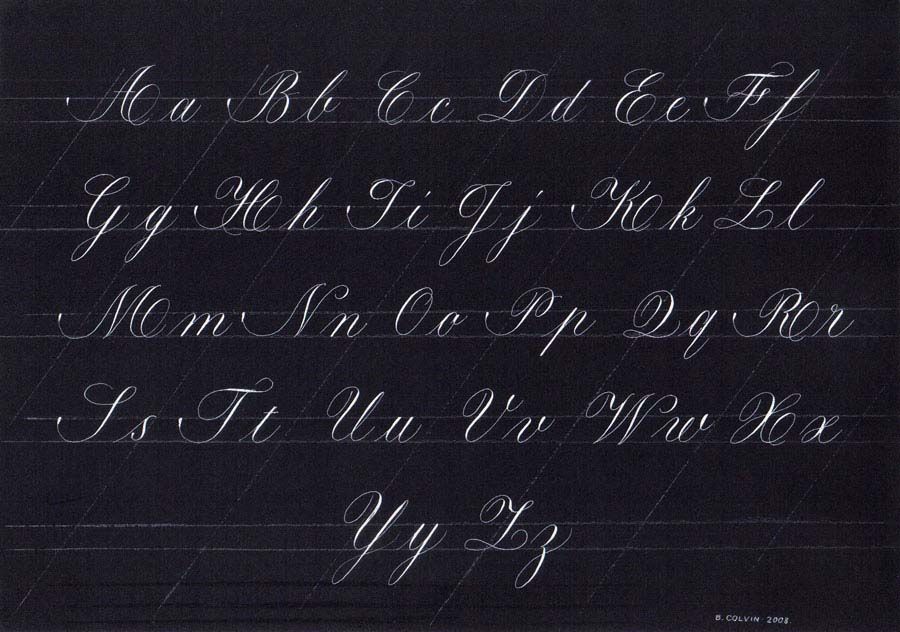 Aa Bb Cc Dd Ee Ff
Gg Hh Ii Jj Kk Ll
Mm Nn Oo Pp Qq Rr
Ss Tt Uu Vv Ww Xx
Yy Zz
B. COLVIN 2008